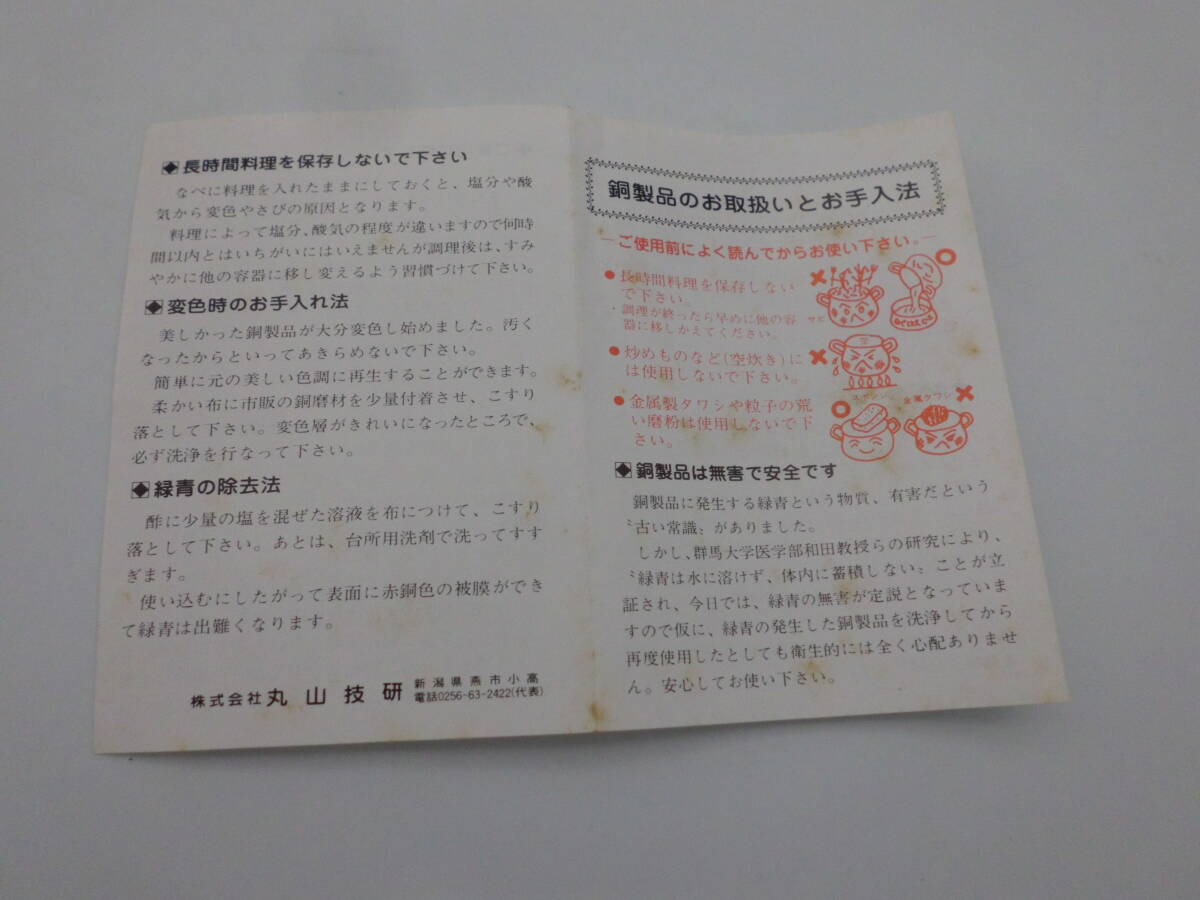 銅製品のお取扱いとお手入法
ご使用前によく読んでからお使い下さい。
●長時間料理を保存しない
で下さい。
・調理が終ったら早めに他の容
器に移しかえてください。
サビ
●炒めものなど(空炊き)に
は使用しないで下さい。
●金属製タワシや粒子の荒
い磨粉は使用しないで下
さい。
スポンジ
金属タワシ
銅製品は無害で安全です
銅製品に発生する緑青という物質、有害だという
〝古い常識〟がありました。
しかし、群馬大学医学部和田教授らの研究により、
〝緑青は水に溶けず、体内に蓄積しない〟ことが立
証され、今日では、緑青の無害が定説となっていま
すので仮に、緑青の発生した銅製品を洗浄してから
再度使用したとしても衛生的には全く心配ありませ
ん。安心してお使い下さい。
長時間料理を保存しないで下さい
なべに料理を入れたままにしておくと、塩分や酸
気から変色やさびの原因となります。
料理によって塩分、酸気の程度が違いますので何時
間以内とはいちがいにはいえませんが調理後は、すみ
やかに他の容器に移し変えるよう習慣づけて下さい。
変色時のお手入れ法
美しかった銅製品が大分変色し始めました。汚く
なったからといってあきらめないで下さい。
簡単に元の美しい色調に再生することができます。
柔かい布に市販の銅磨材を少量付着させ、こすり
落として下さい。変色層がきれいになったところで、
必ず洗浄を行なって下さい。
緑青の除去法
酢に少量の塩を混ぜた溶液を布につけて、こすり
落として下さい。あとは、台所用洗剤で洗ってすす
ぎます。
使い込むにしたがって表面に赤銅色の被膜ができ
て緑青は出難くなります。
株式会社 丸山技研 新潟県燕市小高
電話0256-63-2422(代表)